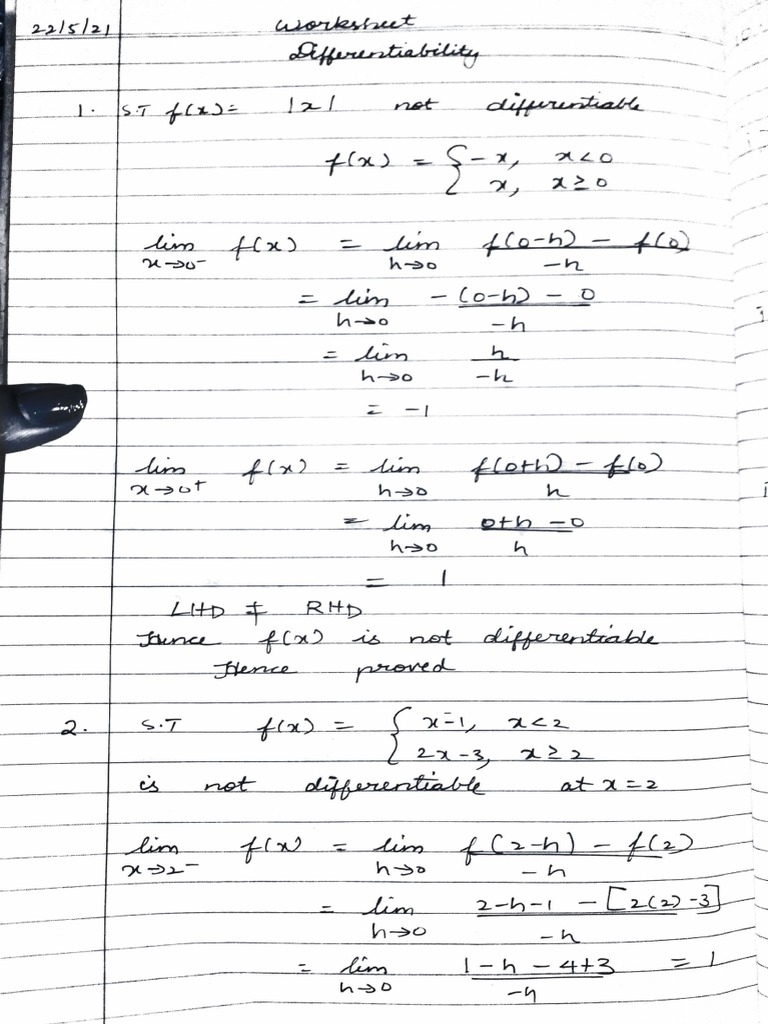 22/5/21 Worksheet
Differentiability
1. S.T f(x) = |x| not differentiable
f(x) = { -x, x<0
x, x≥0
lim x→0⁻ f(x) = lim h→0 f(0-h) - f(0) / -h
= lim h→0 -(0-h) - 0 / -h
= lim h→0 h / -h
= -1
lim x→0⁺ f(x) = lim h→0 f(0+h) - f(0) / h
= lim h→0 0+h-0 / h
= 1
LHD ≠ RHD
Hence f(x) is not differentiable
Hence proved
2. S.T f(x) = { x-1, x<2
2x-3, x≥2
is not differentiable at x=2
lim x→2⁻ f(x) = lim h→0 f(2-h) - f(2) / -h
= lim h→0 2-h-1 - [2(2)-3] / -h
= lim h→0 1-h-4+3 / -h = 1